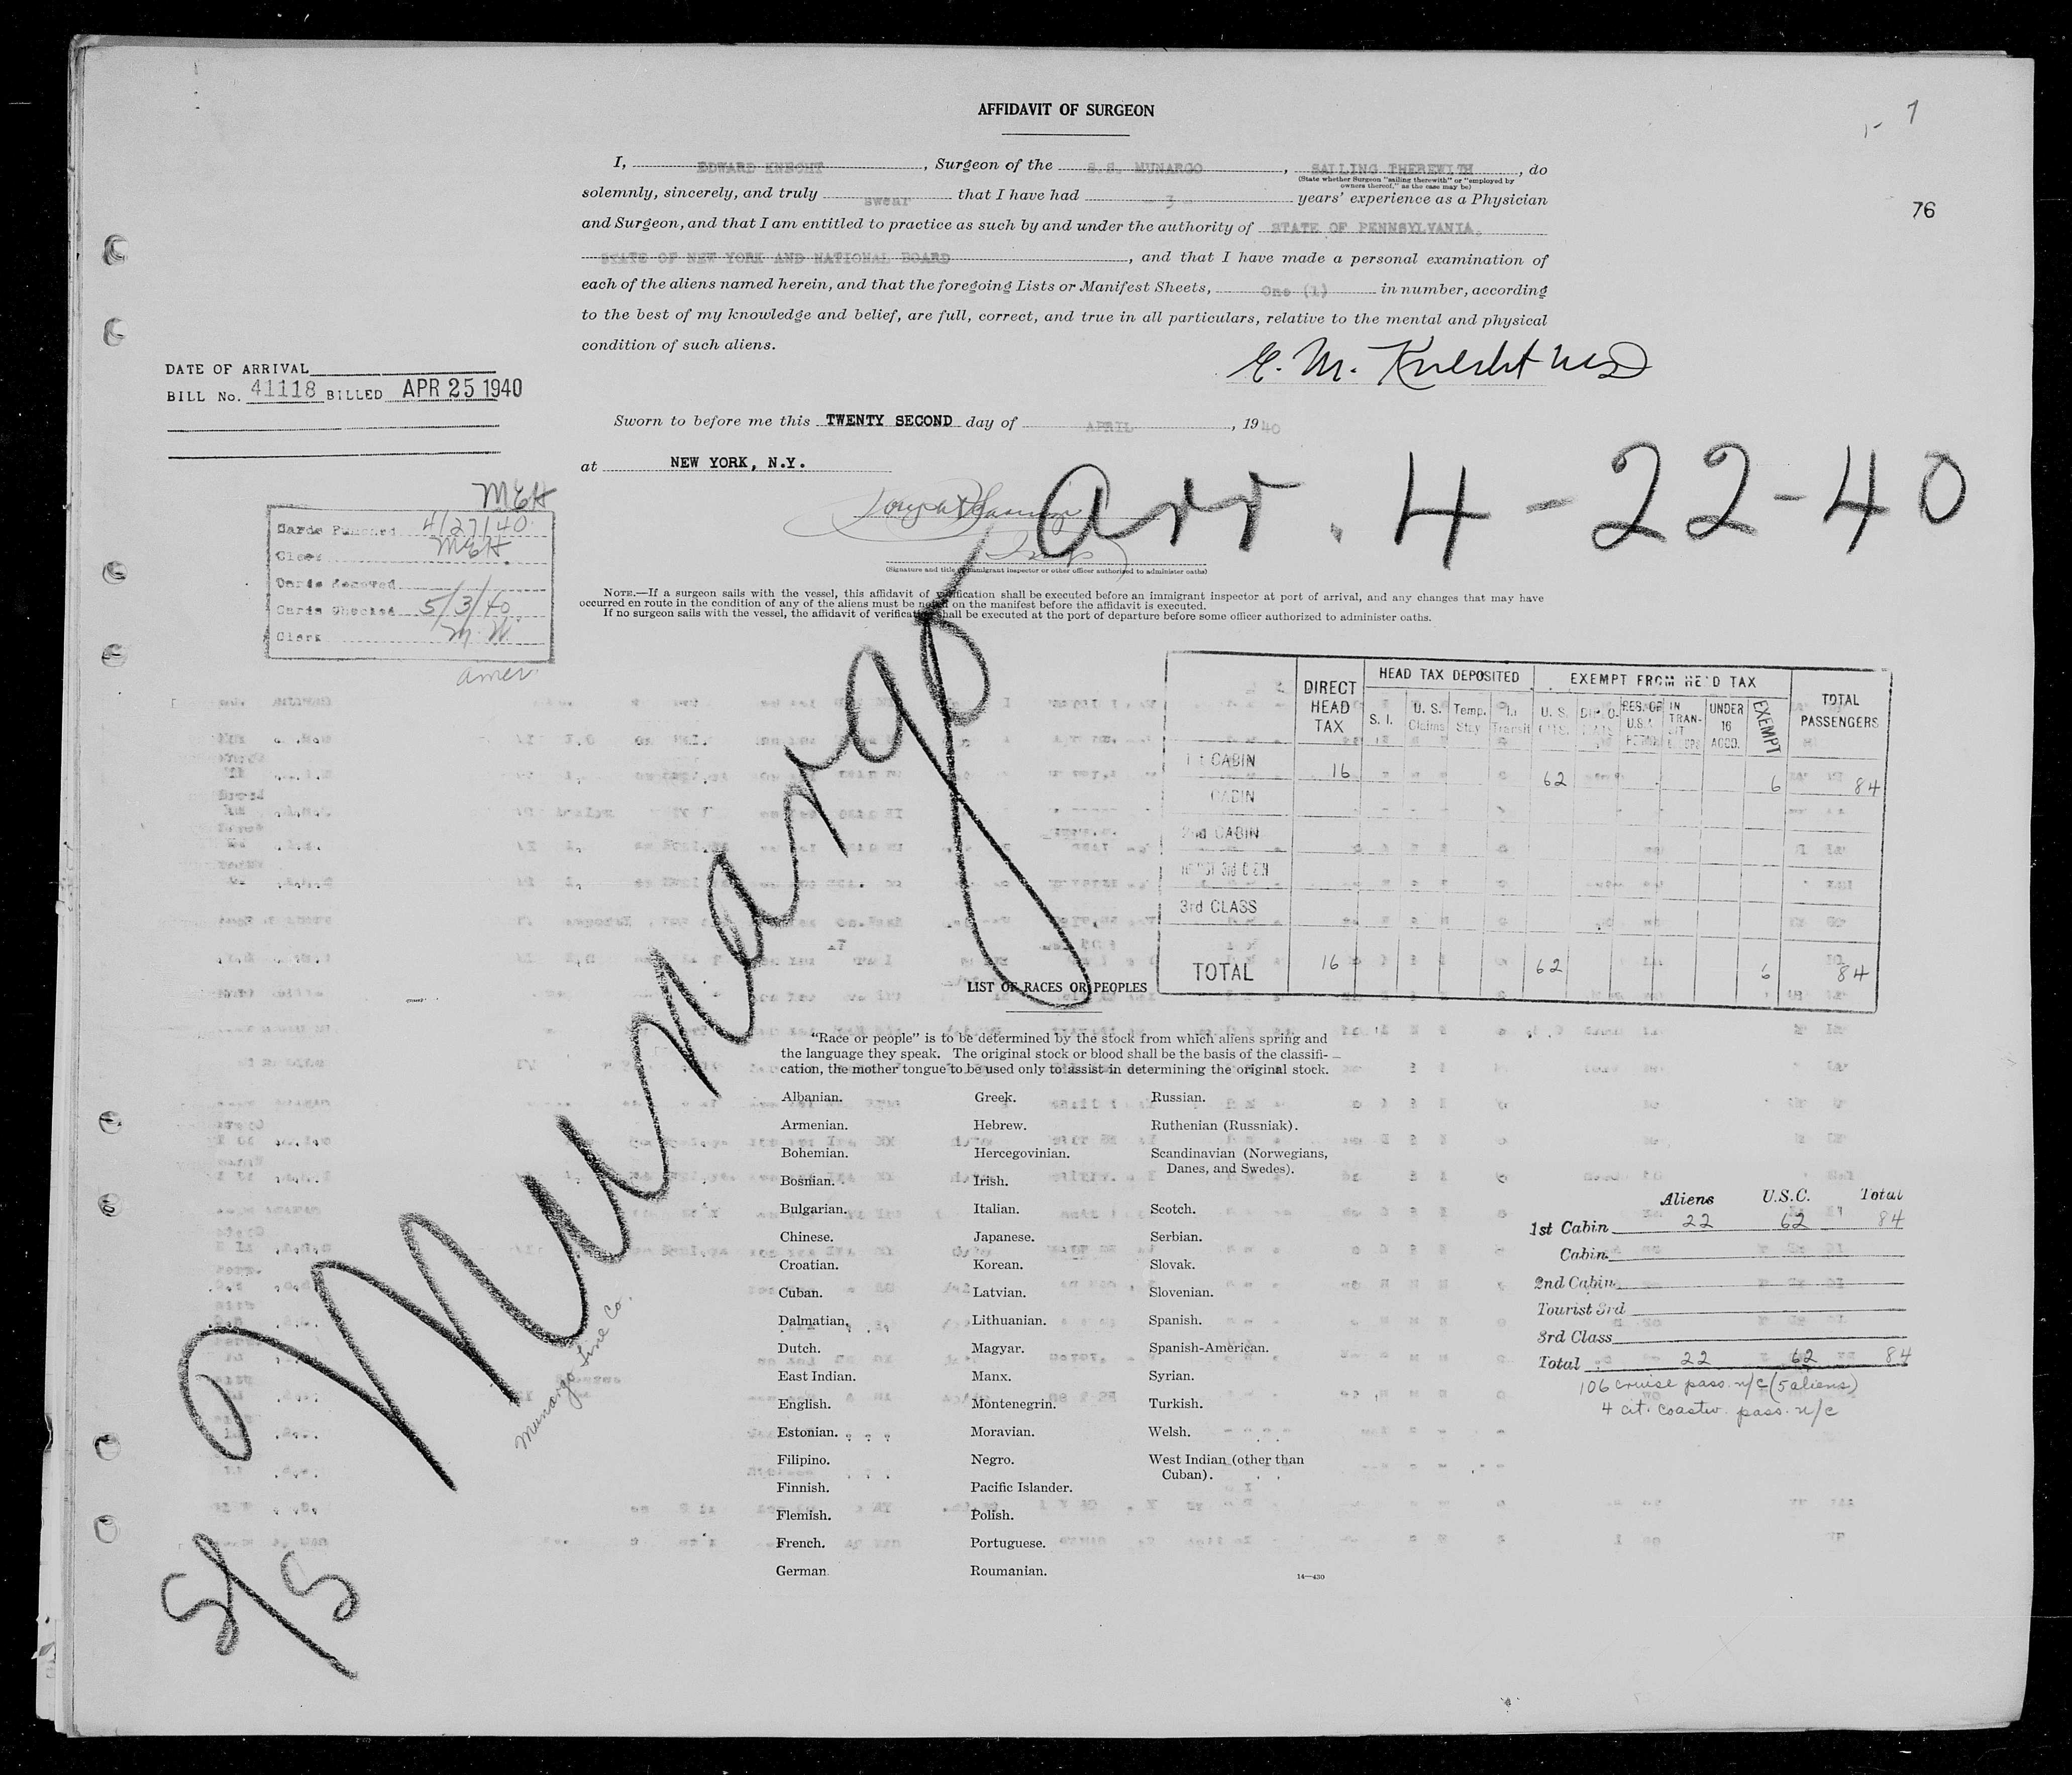 AFFIDAVIT OF SURGEON
7
76
I, EDWARD KNECHT, Surgeon of the S.S. MUNARGO, SAILING THEREWITH, do
(State whether Surgeon "sailing therewith" or "employed by
owners thereof," as the case may be)
solemnly, sincerely, and truly swear that I have had - 3 - years' experience as a Physician
and Surgeon, and that I am entitled to practice as such by and under the authority of STATE OF PENNSYLVANIA,
STATE OF NEW YORK AND NATIONAL BOARD, and that I have made a personal examination of
each of the aliens named herein, and that the foregoing Lists or Manifest Sheets, One (1) in number, according
to the best of my knowledge and belief, are full, correct, and true in all particulars, relative to the mental and physical
condition of such aliens.
E. M. Knecht MD
DATE OF ARRIVAL
BILL No. 41118 BILLED APR 25 1940
Sworn to before me this TWENTY SECOND day of APRIL, 1940
at NEW YORK, N.Y.
arr. 4-22-40
(Signature and title of immigrant inspector or other officer authorized to administer oaths)
MEH
Cards Punched 4/27/40
Clerk MEH.
Cards Removed
Cards Checked 5/3/40
Clerk M.W.
amer.
NOTE.—If a surgeon sails with the vessel, this affidavit of verification shall be executed before an immigrant inspector at port of arrival, and any changes that may have
occurred en route in the condition of any of the aliens must be noted on the manifest before the affidavit is executed.
If no surgeon sails with the vessel, the affidavit of verification shall be executed at the port of departure before some officer authorized to administer oaths.
S/S Munargo
Munargo Line Co.
DIRECT HEAD TAX
HEAD TAX DEPOSITED
EXEMPT FROM HEAD TAX
TOTAL PASSENGERS
S. I.
U. S. Claims
Temp. Stay
In Transit
U. S. CITS.
DIPLO-MATS
RES. OF U.S.A.
IN TRAN-SIT
UNDER 16 ACCD.
EXEMPT
1st CABIN 16 62 6 84
CABIN
2nd CABIN
3rd CLASS
TOTAL 16 62 6 84
LIST OF RACES OR PEOPLES
"Race or people" is to be determined by the stock from which aliens spring and
the language they speak. The original stock or blood shall be the basis of the classifi-
cation, the mother tongue to be used only to assist in determining the original stock.
Albanian.
Armenian.
Bohemian.
Bosnian.
Bulgarian.
Chinese.
Croatian.
Cuban.
Dalmatian.
Dutch.
East Indian.
English.
Estonian.
Filipino.
Finnish.
Flemish.
French.
German.
Greek.
Hebrew.
Hercegovinian.
Irish.
Italian.
Japanese.
Korean.
Latvian.
Lithuanian.
Magyar.
Manx.
Montenegrin.
Moravian.
Negro.
Pacific Islander.
Polish.
Portuguese.
Roumanian.
Russian.
Ruthenian (Russniak).
Scandinavian (Norwegians,
Danes, and Swedes).
Scotch.
Serbian.
Slovak.
Slovenian.
Spanish.
Spanish-American.
Syrian.
Turkish.
Welsh.
West Indian (other than
Cuban).
14—430
Aliens U.S.C. Total
1st Cabin 22 62 84
Cabin
2nd Cabin
Tourist 3rd
3rd Class
Total 22 62 84
106 cruise pass. n/c (5 aliens)
4 cit. coastw. pass. n/c